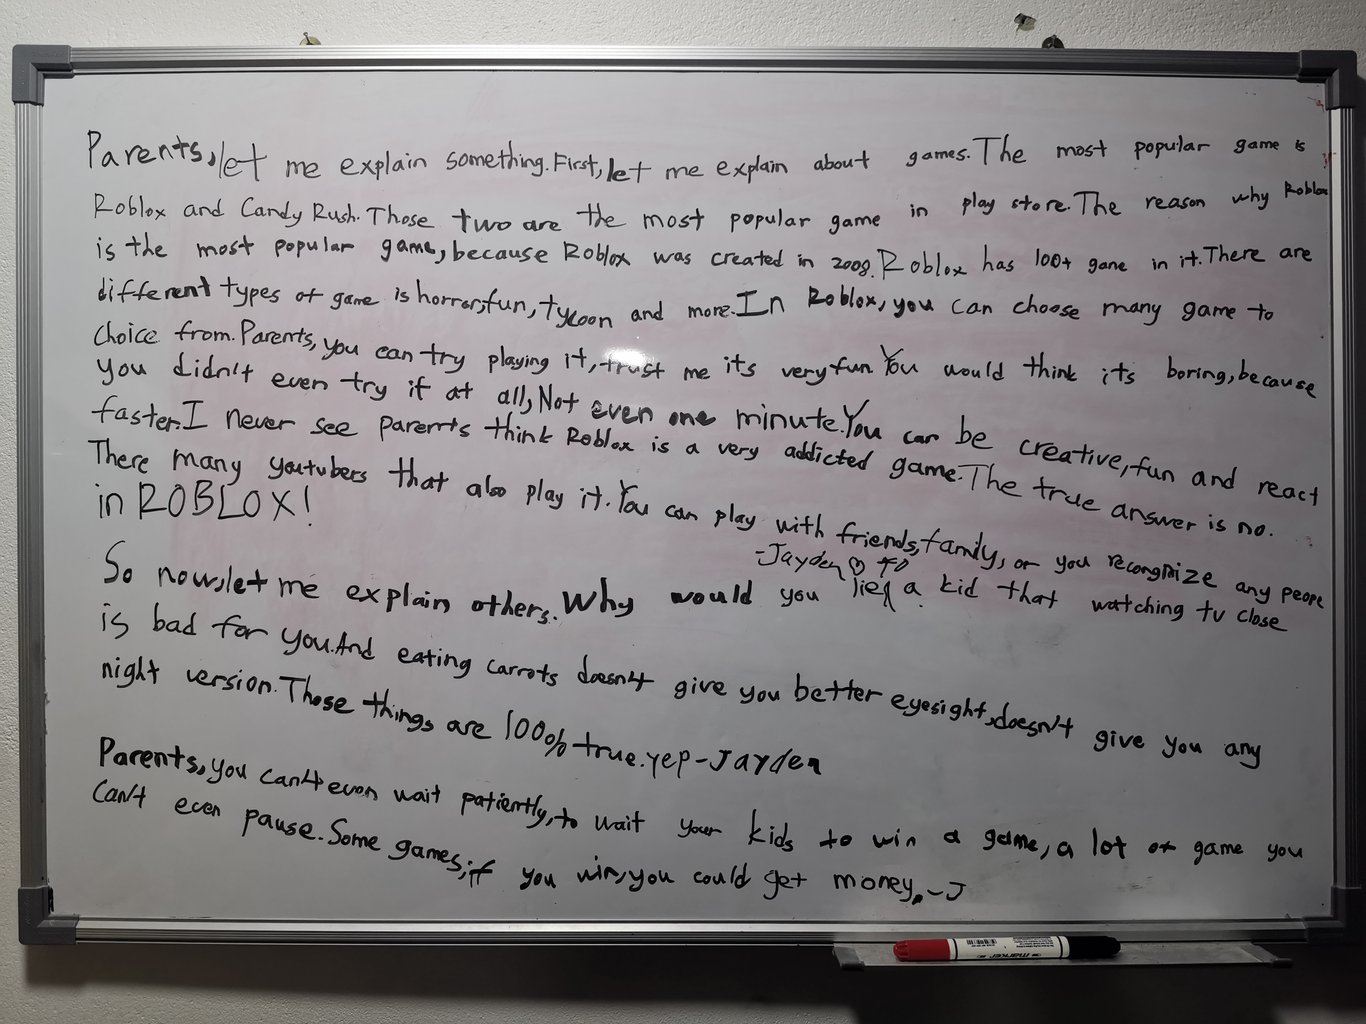 Parents, let me explain something. First, let me explain about games. The most popular game is
Roblox and Candy Rush. Those two are the most popular game in play store. The reason why Roblox
is the most popular game, because Roblox was created in 2008. Roblox has 100+ game in it. There are
different types of game is horror, fun, tycoon and more. In Roblox, you can choose many game to
choice from. Parents, you can try playing it, trust me its very fun. You would think its boring, because
you didn't even try if at all, Not even one minute. You can be creative, fun and react
faster. I never see parents think Roblox is a very addicted game. The true answer is no.
There many youtubers that also play it. You can play with friends, family, or you recongnize any peope
in ROBLOX!
-Jayden
So now, let me explain others. Why would you a kid that watching tv close
is bad for you. And eating carrots doesn't give you better eyesight, doesn't give you any
night version. Those things are 100% true. yep-Jayden
Parents, you can't even wait patiently, to wait your kids to win a game, a lot of game you
can't even pause. Some games, if you win, you could get money. -J
marker